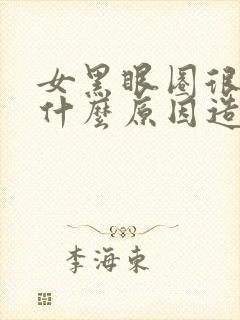 女黑眼圈很
什麼原因造
李海東